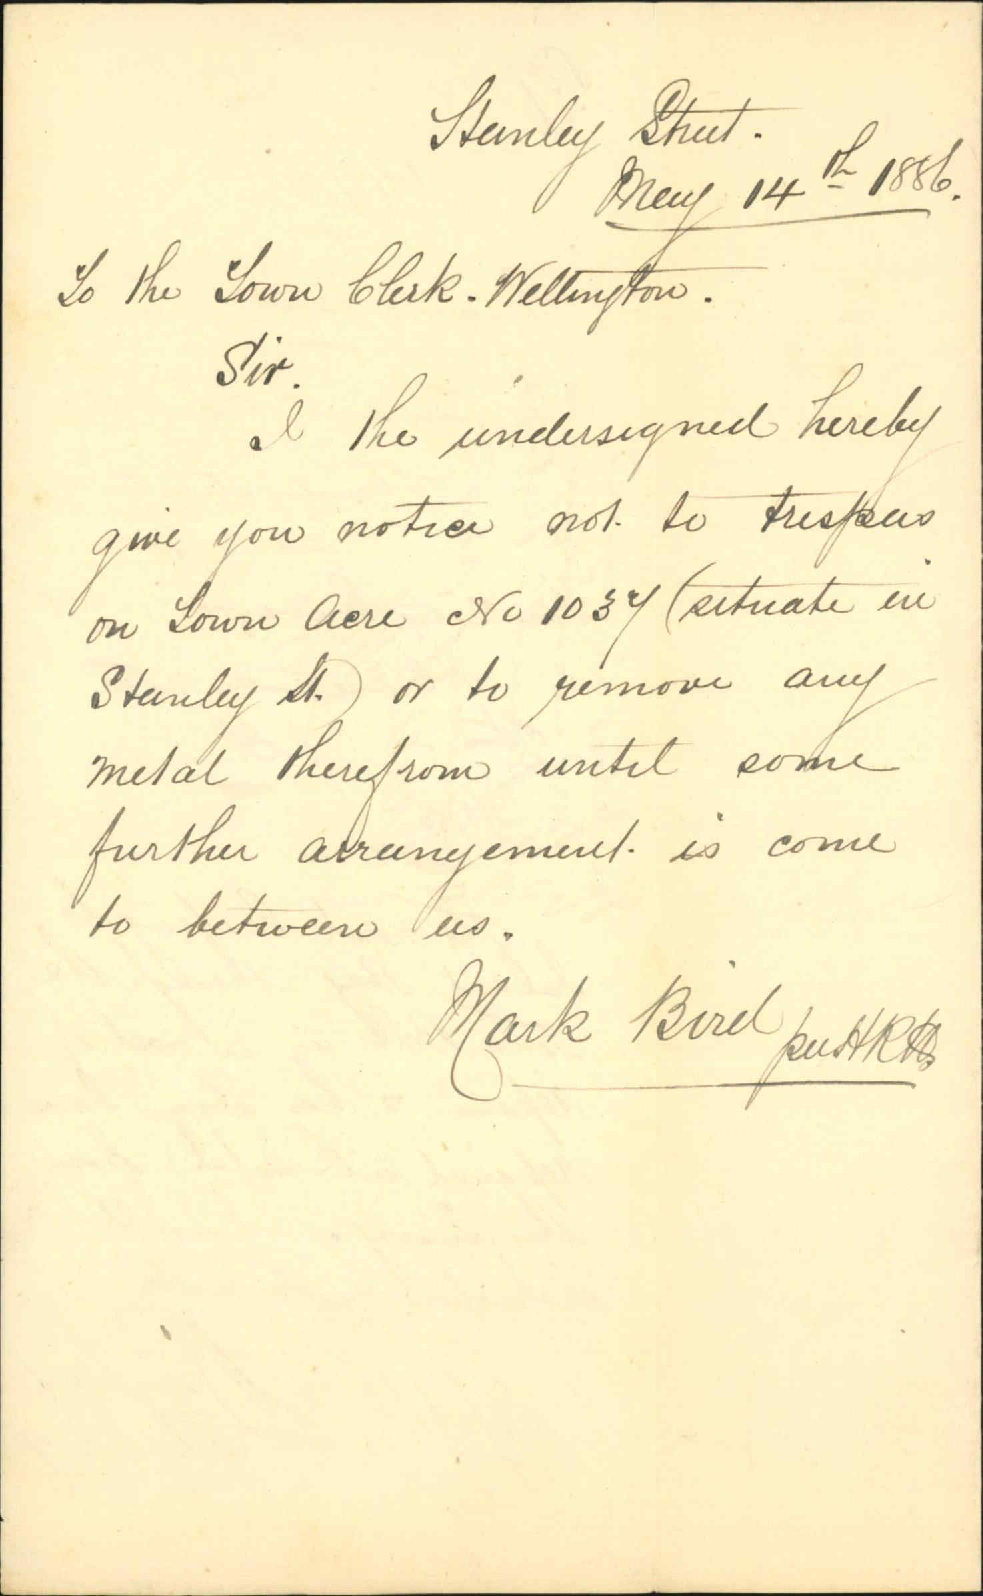 Stanley Street.
May 14th 1886.
To the Town Clerk. Wellington.
Sir.
I the undersigned hereby
give you notice not to trespass
on Town Acre No 1037 (situate in
Stanley St.) or to remove any
metal therefrom until some
further arrangement is come
to between us.
Mark Bird per